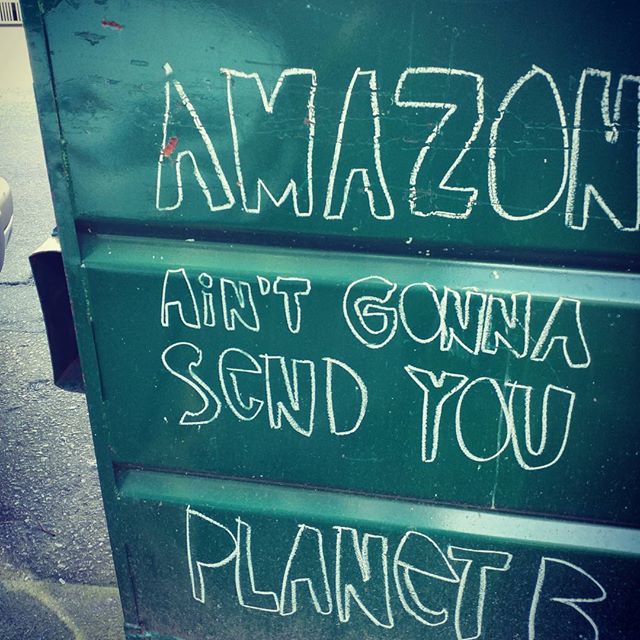 AMAZON
AiN'T GONNA
SeND YOU
PLANeT B